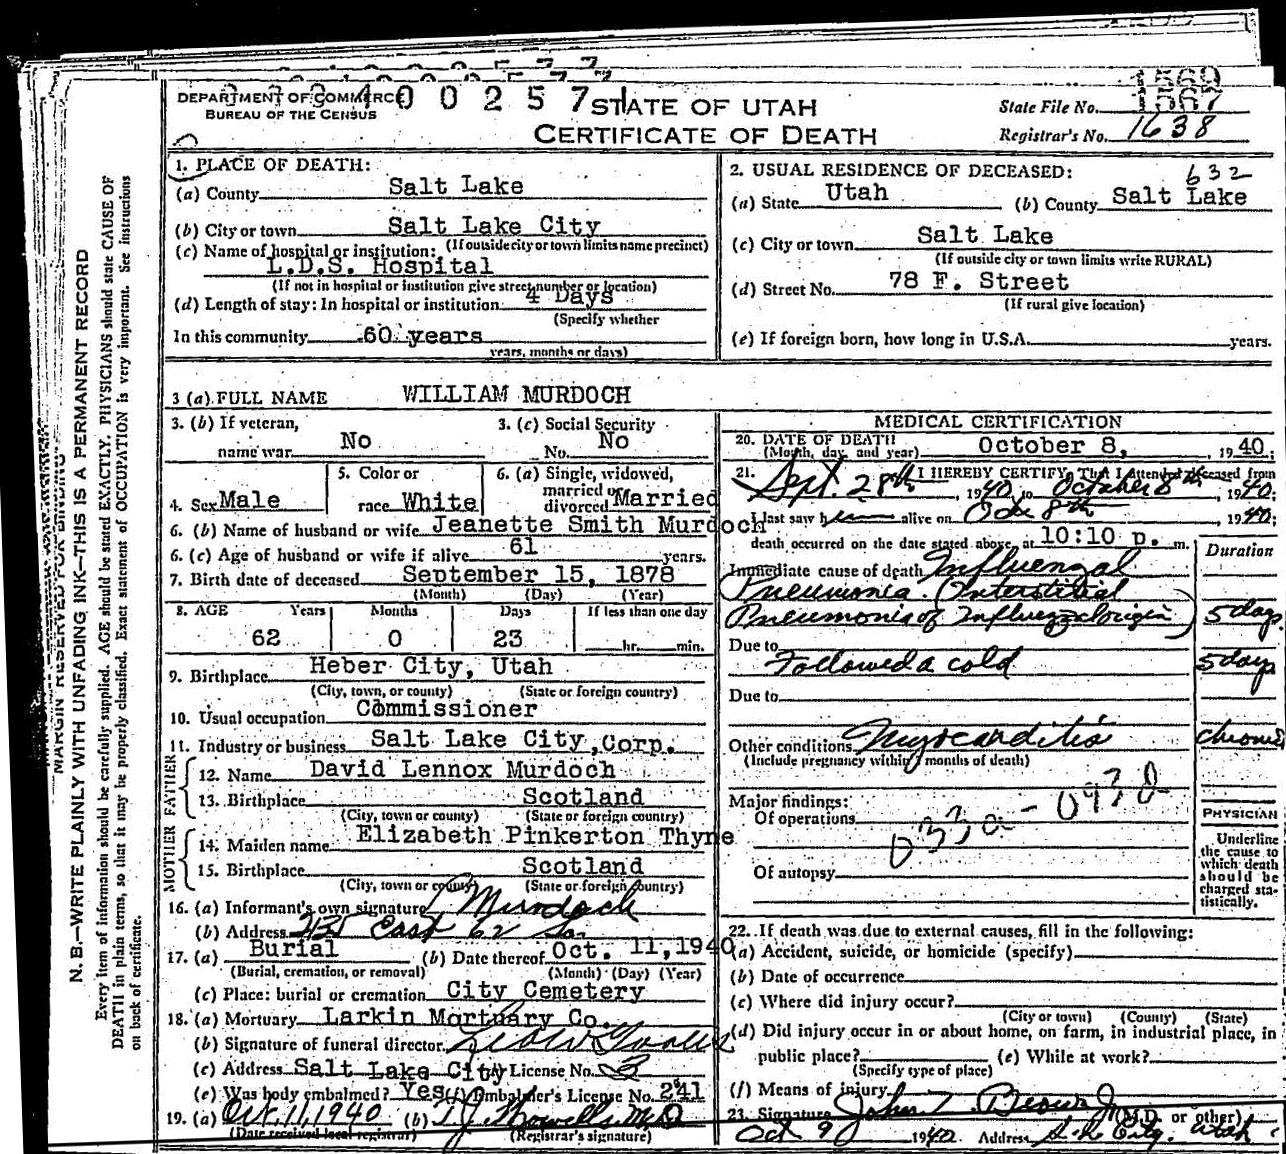 DEPARTMENT OF COMMERCE
BUREAU OF THE CENSUS
400257
STATE OF UTAH
CERTIFICATE OF DEATH
1569
State File No. 1567
Registrar's No. 1638
MARGIN RESERVED FOR BINDING
N. B.—WRITE PLAINLY WITH UNFADING INK—THIS IS A PERMANENT RECORD
Every item of information should be carefully supplied. AGE should be stated EXACTLY. PHYSICIANS should state CAUSE OF
DEATH in plain terms, so that it may be properly classified. Exact statement of OCCUPATION is very important. See instructions
on back of certificate.
1. PLACE OF DEATH:
(a) County Salt Lake
(b) City or town Salt Lake City
(If outside city or town limits name precinct)
(c) Name of hospital or institution:
L.D.S. Hospital
(If not in hospital or institution give street number or location)
(d) Length of stay: In hospital or institution 4 Days
(Specify whether
In this community 60 years
years, months or days)
2. USUAL RESIDENCE OF DECEASED: 632
(a) State Utah (b) County Salt Lake
(c) City or town Salt Lake
(If outside city or town limits write RURAL)
(d) Street No. 78 F. Street
(If rural give location)
(e) If foreign born, how long in U.S.A. years.
3 (a) FULL NAME WILLIAM MURDOCH
3. (b) If veteran, name war No
3. (c) Social Security No. No
4. Sex Male
5. Color or race White
6. (a) Single, widowed, married or divorced Married
6. (b) Name of husband or wife Jeanette Smith Murdoch
6. (c) Age of husband or wife if alive 61 years.
7. Birth date of deceased September 15, 1878
(Month) (Day) (Year)
8. AGE Years Months Days If less than one day
62 0 23 hr. min.
9. Birthplace Heber City, Utah
(City, town, or county) (State or foreign country)
10. Usual occupation Commissioner
11. Industry or business Salt Lake City, Corp.
FATHER
12. Name David Lennox Murdoch
13. Birthplace Scotland
(City, town, or county) (State or foreign country)
MOTHER
14. Maiden name Elizabeth Pinkerton Thyne
15. Birthplace Scotland
(City, town or county) (State or foreign country)
16. (a) Informant's own signature Murdoch
(b) Address East So.
17. (a) Burial (b) Date thereof Oct. 11, 1940
(Burial, cremation, or removal) (Month) (Day) (Year)
(c) Place: burial or cremation City Cemetery
18. (a) Mortuary Larkin Mortuary Co.
(b) Signature of funeral director
(c) Address Salt Lake City License No.
(e) Was body embalmed? Yes (f) Embalmer's License No. 241
19. (a) Oct. 11, 1940 (b) T. J. Howells M.D
(Date received local registrar) (Registrar's signature)
MEDICAL CERTIFICATION
20. DATE OF DEATH October 8, 1940.
(Month, day, and year)
21. I HEREBY CERTIFY, That I attended deceased from
Sept. 28th, 1940 to October 8th, 1940.
I last saw him alive on Oct 8th 1940;
death occurred on the date stated above, at 10:10 p. m.
Duration
Immediate cause of death Influenzal
Pneumonia (Interstitial
Pneumonia of Influenza origin) 5 days
Due to
Followed a cold 5 days
Due to
Other conditions Myocarditis chronic
(Include pregnancy within 3 months of death)
Major findings:
Of operations
Of autopsy
PHYSICIAN
Underline
the cause to
which death
should be
charged sta-
tistically.
22. If death was due to external causes, fill in the following:
(a) Accident, suicide, or homicide (specify)
(b) Date of occurrence
(c) Where did injury occur?
(City or town) (County) (State)
(d) Did injury occur in or about home, on farm, in industrial place, in
public place? (e) While at work?
(Specify type of place)
(f) Means of injury
23. Signature John Z. Brown Jr (M.D. or other)
Oct 9 1940 Address S. L. City, Utah